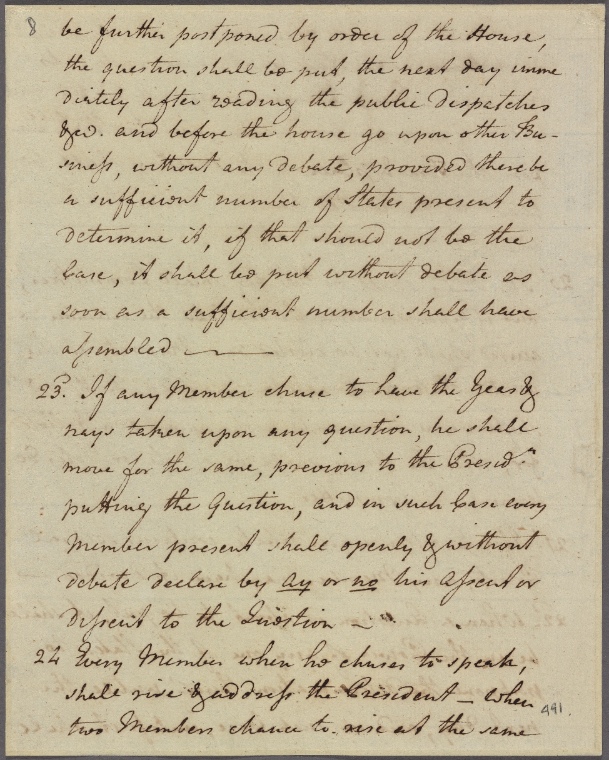 8 be further postponed by order of the House,
the question shall be put, the next day imme
diately after reading the public dispatches
&c. and before the house go upon other Bu-
siness, without any debate, provided there be
a sufficient number of States present to
determine it, if that should not be the
Case, it shall be put without debate as
soon as a sufficient number shall have
assembled
23. If any Member chuse to have the Yeas &
nays taken upon any question, he shall
move for the same, previous to the Presid.ts
putting the Question, and in such Case every
Member present shall openly & without
debate declare by ay or no his assent or
Dissent to the Question
24 Every Member when he chuses to speak,
shall rise & address the President — When
two Members chance to rise at the same
491.